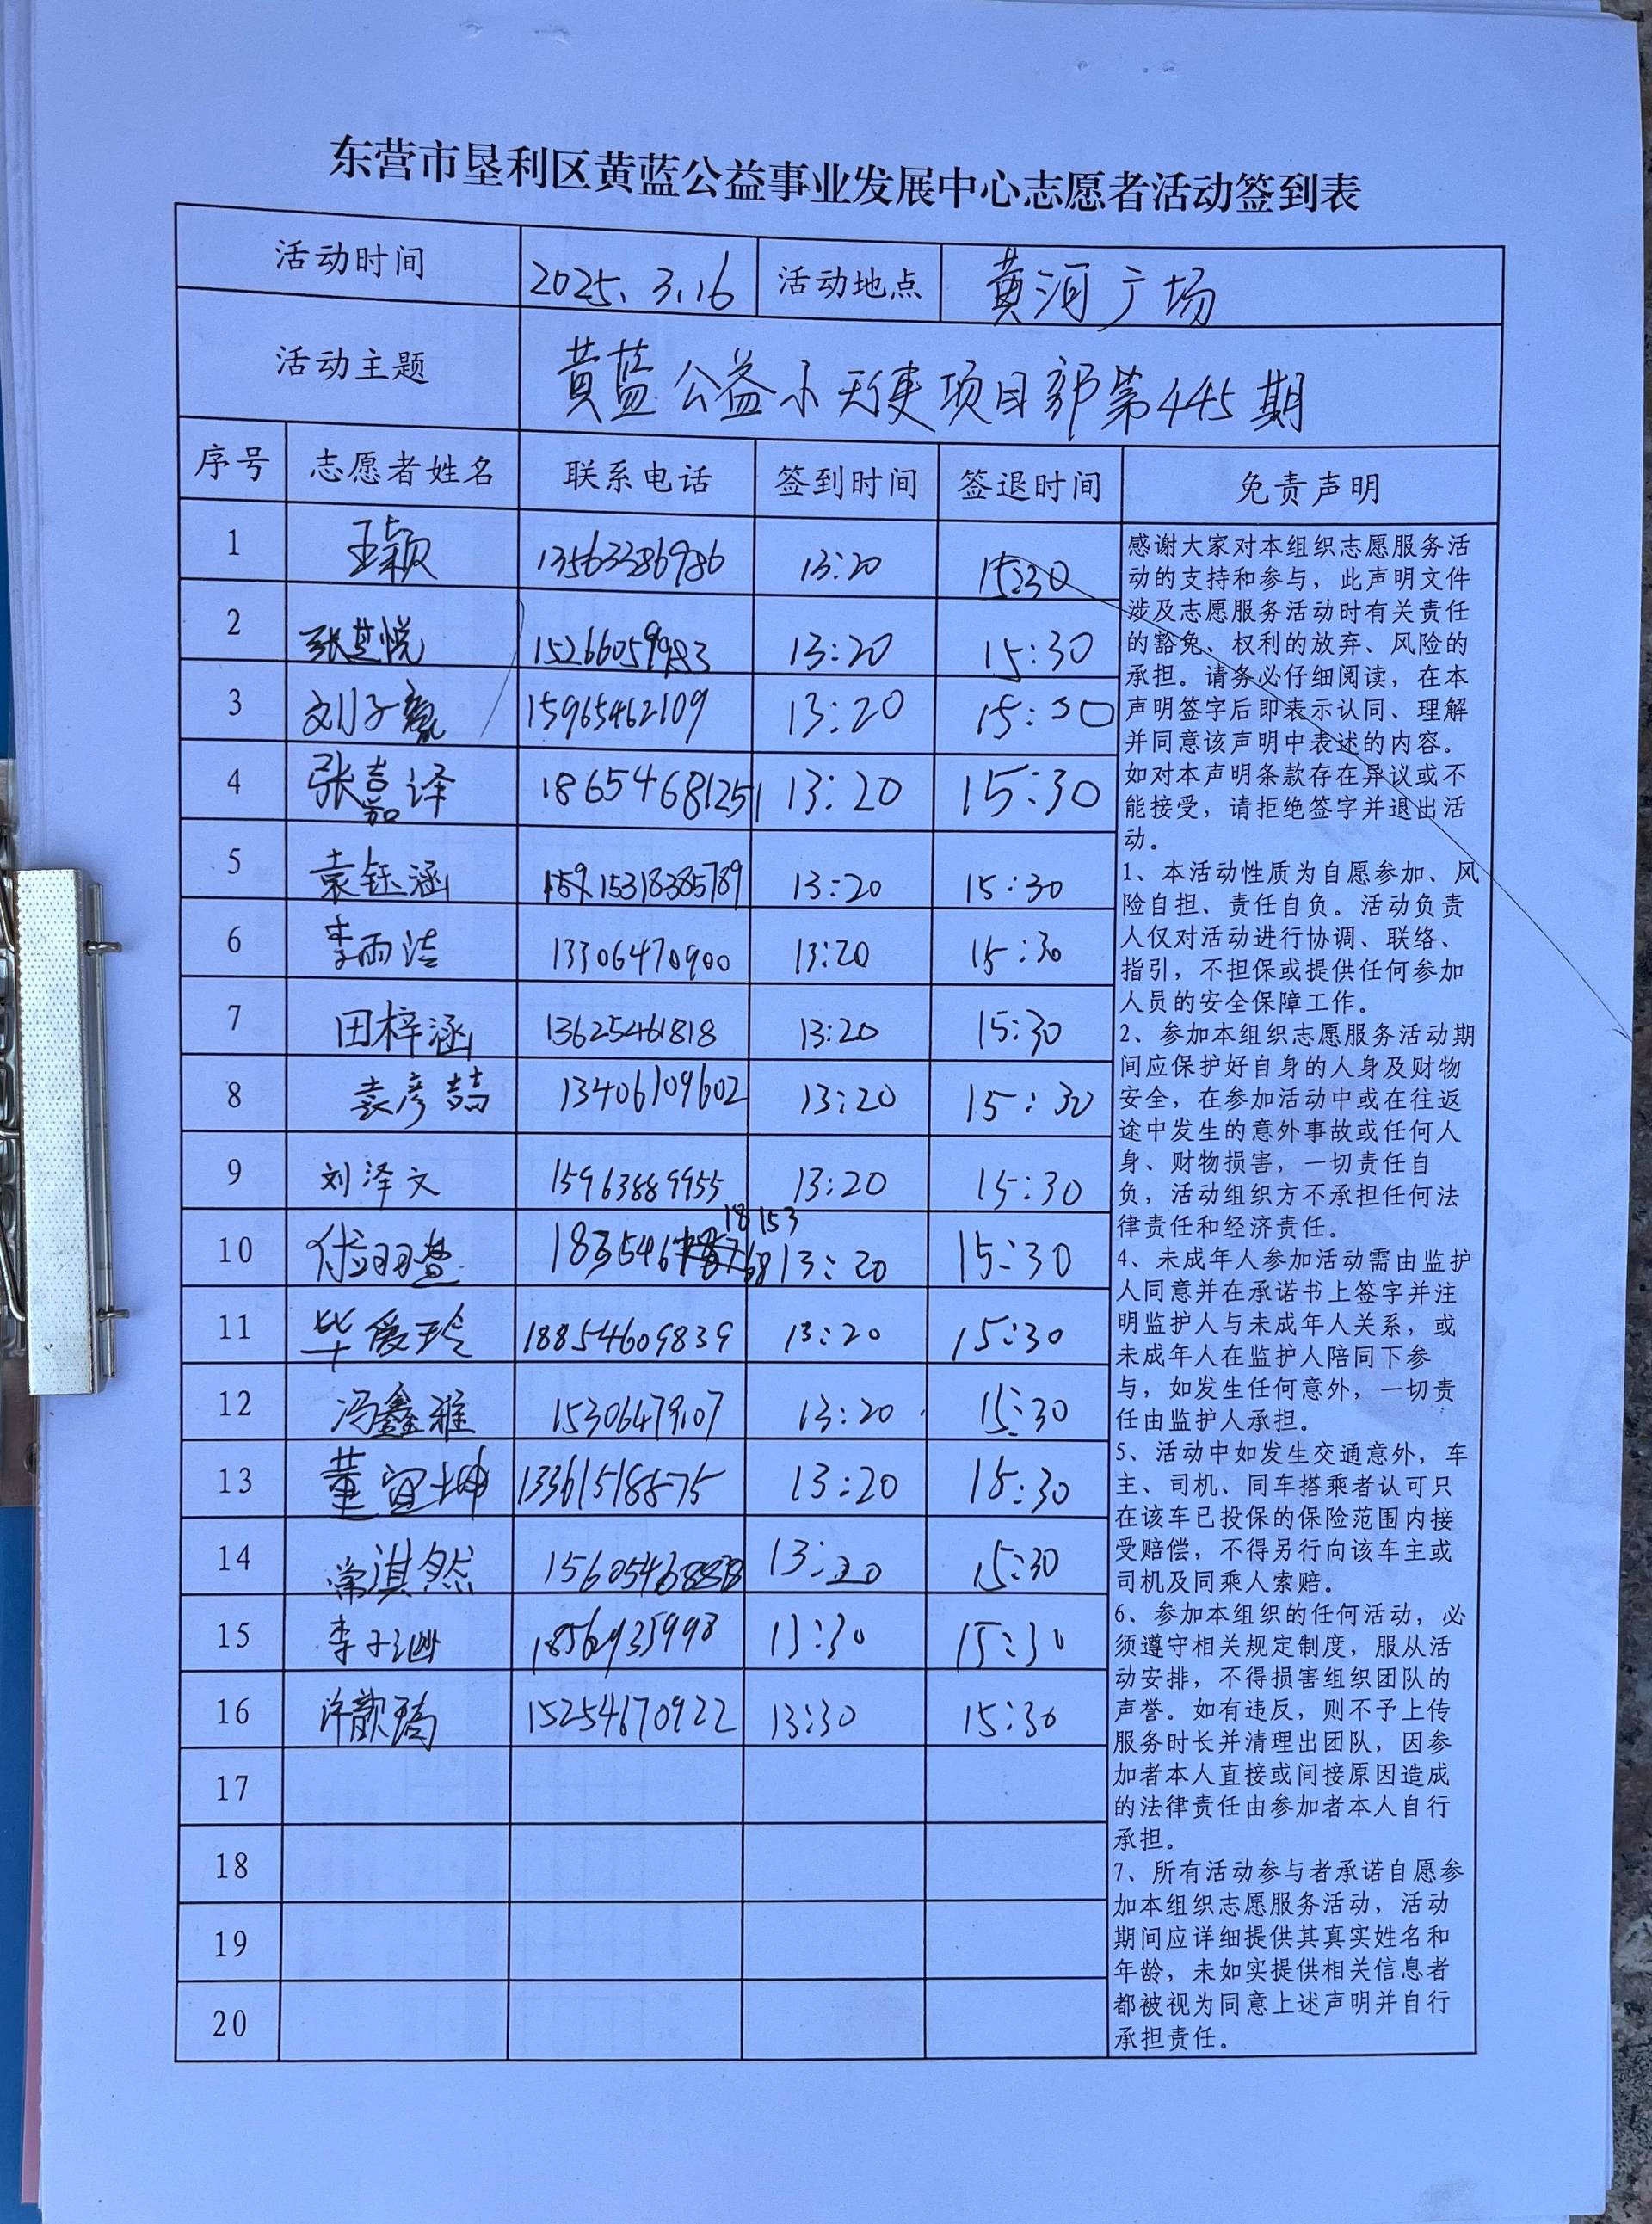 东营市垦利区黄蓝公益事业发展中心志愿者活动签到表
活动时间 2025.3.16 活动地点 黄河广场
活动主题 黄蓝公益小天使项目部第445期
序号 志愿者姓名 联系电话 签到时间 签退时间 免责声明
1 王颖 13563386986 13:20 15:30
2 张芸悦 15266059983 13:20 15:30
3 刘子赢 15965462109 13:20 15:30
4 张嘉译 18654681251 13:20 15:30
5 袁钰涵 15318385789 13:20 15:30
6 李雨洁 13306470900 13:20 15:30
7 田梓涵 13625461818 13:20 15:30
8 袁彦喆 13406109602 13:20 15:30
9 刘泽文 15963889955 13:20 15:30
10 13:20 15:30
11 毕爱玲 18854609839 13:20 15:30
12 冯鑫雅 15306479107 13:20 15:30
13 董宜坤 13361518875 13:20 15:30
14 常淇然 13:20 15:30
15 李子 18561935998 13:30 15:30
16 许歆 15254670922 13:30 15:30
17
18
19
20
感谢大家对本组织志愿服务活
动的支持和参与，此声明文件
涉及志愿服务活动时有关责任
的豁免、权利的放弃、风险的
承担。请务必仔细阅读，在本
声明签字后即表示认同、理解
并同意该声明中表述的内容。
如对本声明条款存在异议或不
能接受，请拒绝签字并退出活
动。
1、本活动性质为自愿参加、风
险自担、责任自负。活动负责
人仅对活动进行协调、联络、
指引，不担保或提供任何参加
人员的安全保障工作。
2、参加本组织志愿服务活动期
间应保护好自身的人身及财物
安全，在参加活动中或在往返
途中发生的意外事故或任何人
身、财物损害，一切责任自
负，活动组织方不承担任何法
律责任和经济责任。
4、未成年人参加活动需由监护
人同意并在承诺书上签字并注
明监护人与未成年人关系，或
未成年人在监护人陪同下参
与，如发生任何意外，一切责
任由监护人承担。
5、活动中如发生交通意外，车
主、司机、同车搭乘者认可只
在该车已投保的保险范围内接
受赔偿，不得另行向该车主或
司机及同乘人索赔。
6、参加本组织的任何活动，必
须遵守相关规定制度，服从活
动安排，不得损害组织团队的
声誉。如有违反，则不予上传
服务时长并清理出团队，因参
加者本人直接或间接原因造成
的法律责任由参加者本人自行
承担。
7、所有活动参与者承诺自愿参
加本组织志愿服务活动，活动
期间应详细提供其真实姓名和
年龄，未如实提供相关信息者
都被视为同意上述声明并自行
承担责任。